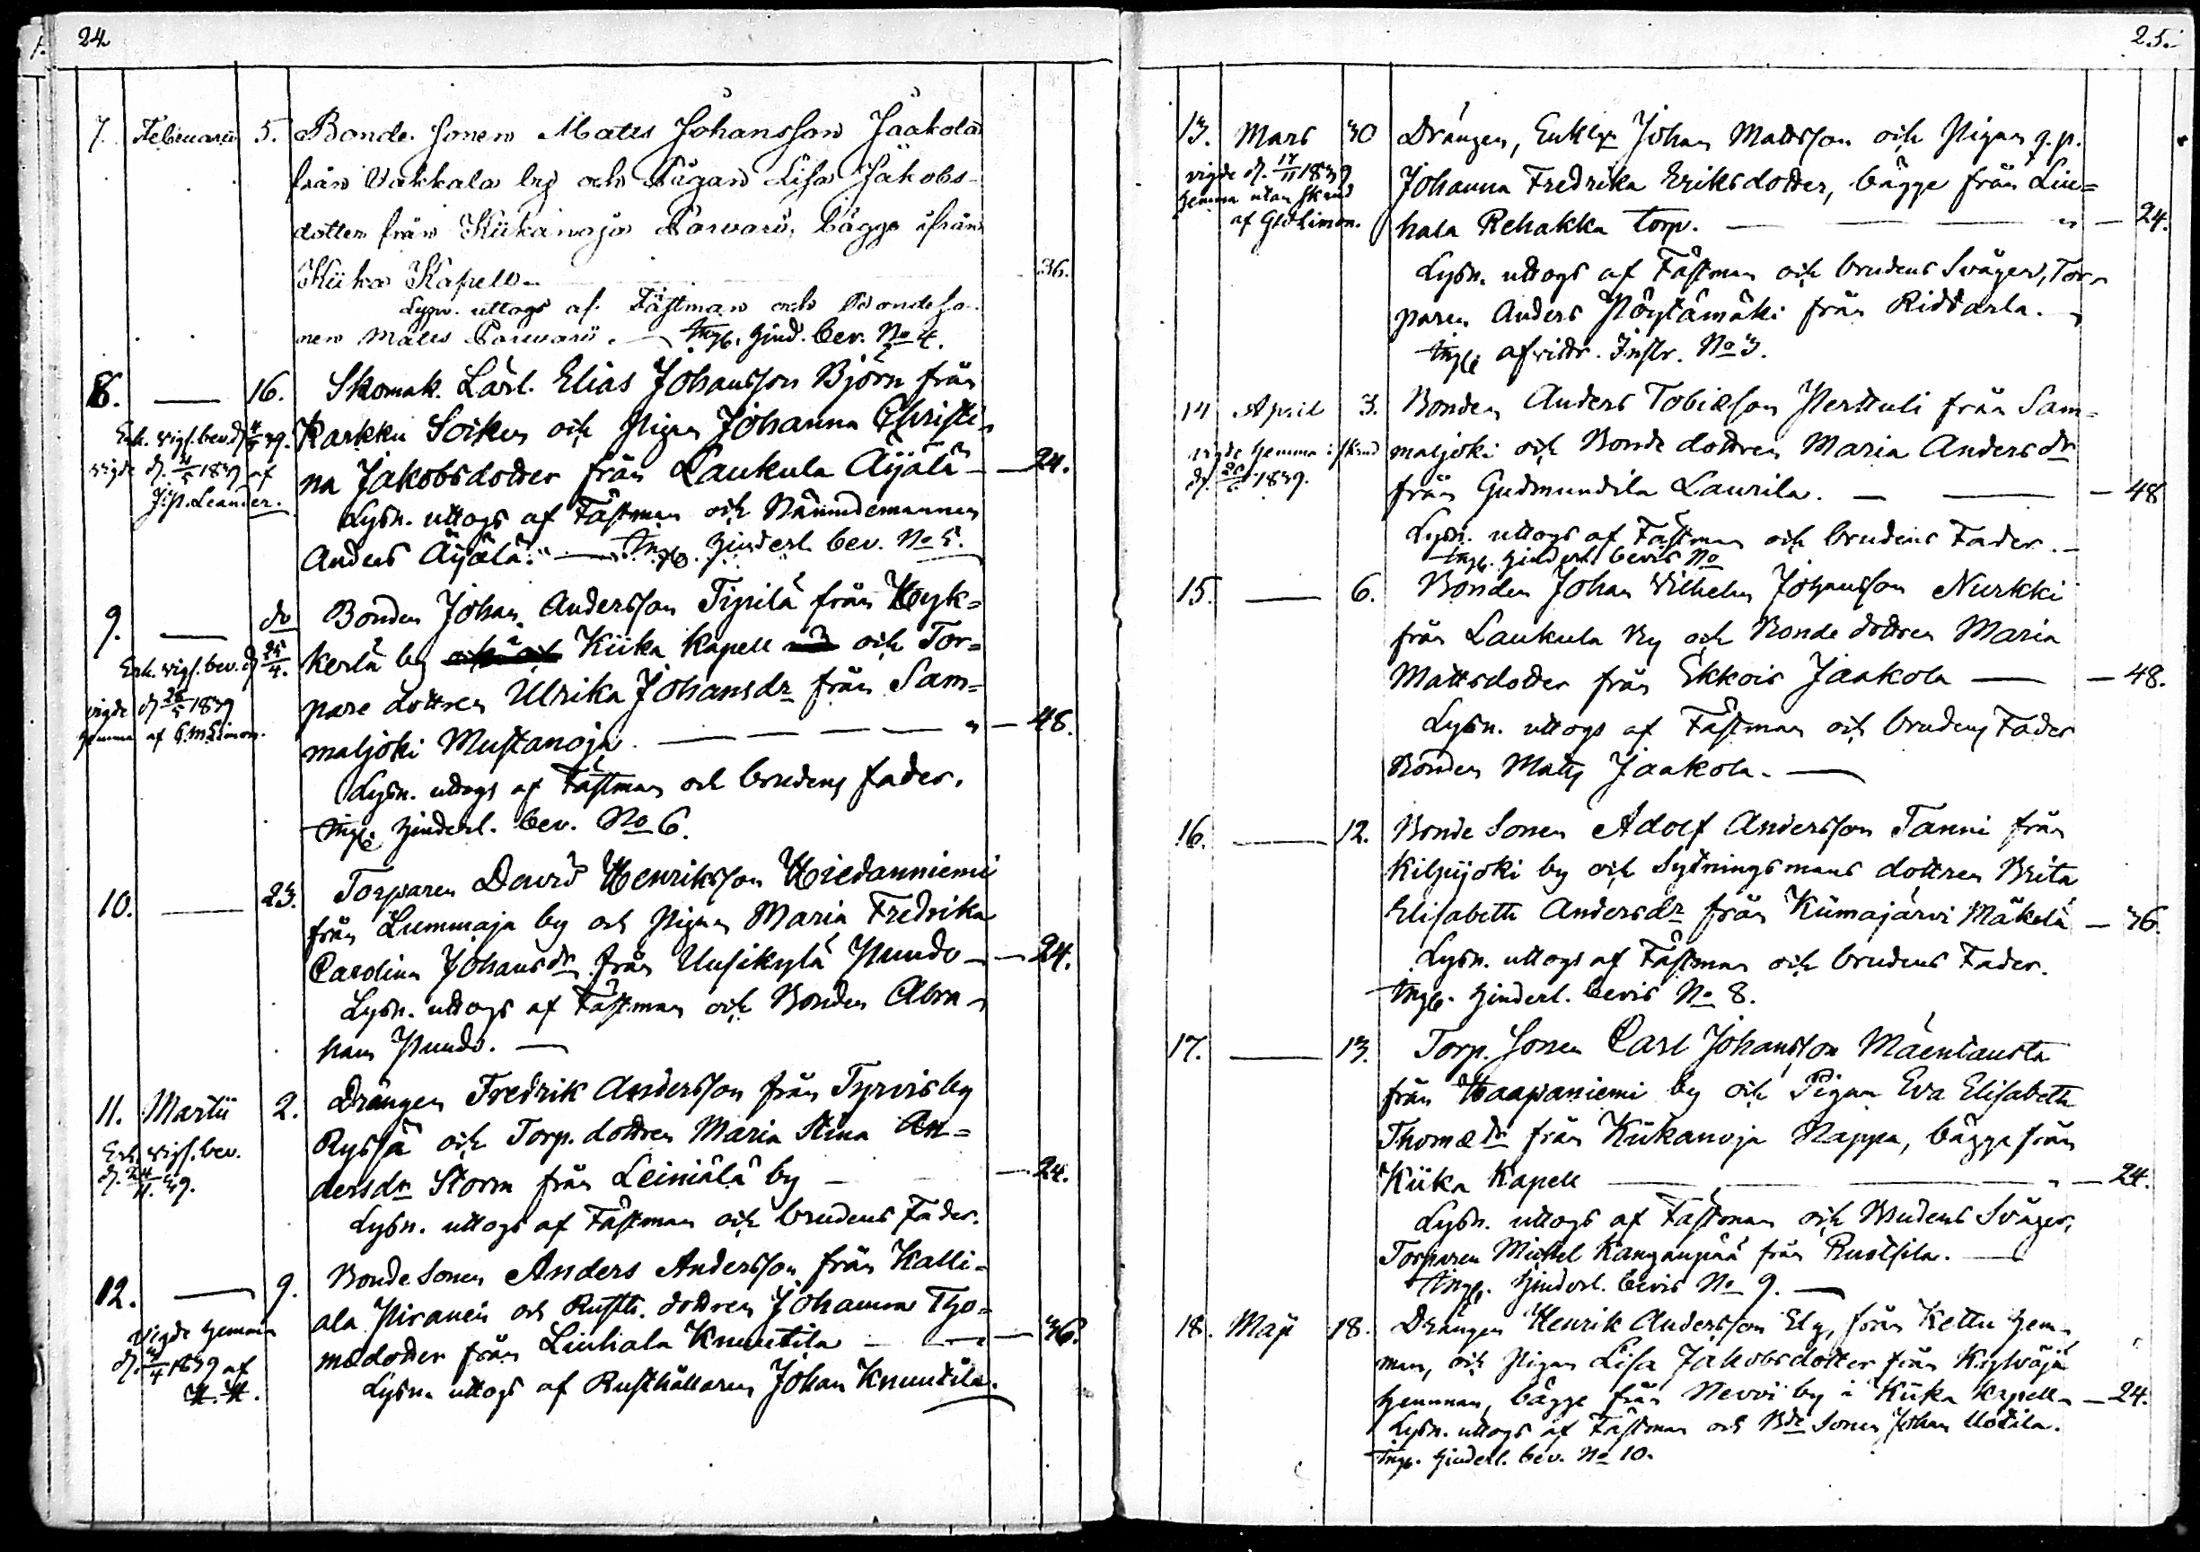 24
7. Februarii 5. Bonde Sonen Matts Johansson Jaakola
från Vakkala by och Pigan Lisa Jakobs-
dotter från Kiikanoja Parvari, bägge ifrån
Kiika Kapell — 36.
Lysn. uttogs af Fästman och Bondeso-
nen Matts Parvari. — Ingl. Hind. bev. No 4.
8. — 16. Skomak. Lärl. Elias Johansson Björn från
Erh. vigs. bev. d. Karkku Soiken och Pigan Johanna Christi-
vigde d. 1839 af na Jakobsdotter från Laukula Äijälä — 24.
J. P. Leander. Lysn. uttogs af Fästman och Nämndemannen
Anders Äijälä. — Ingl. Hinderl. bev. No 5.
9. — do Bonden Johan Andersson Tyrilä från Kyk-
Erh. vigs. bev. d. 25/4. kerlä by Kiika Kapell och Tor-
vigde d. 26/5 1839 pare dottren Ulrika Johansdr från Sam-
hemma af G. M. Limon. maljoki Mustanoja. — 48.
Lysn. uttogs af Fästman och brudens fader.
Ingl. Hinderl. bev. No 6.
10. — 23. Torparen David Henriksson Hiedanniemi
från Lummaja by och Pigan Maria Fredrika
Carolina Johansdr från Uusikylä Pundo — 24.
Lysn. uttogs af Fästman och Bonden Abra-
ham Pundo. —
11. Martii 2. Drängen Fredrik Andersson från Tyrvisby
Erh. vigs. bev. Ryssä och Torp. dottren Maria Stina An-
39. dersdr Storm från Leiniälä by — 24.
Lysn. uttogs af Fästman och brudens Fader.
12. — 9. Bonde Sonen Anders Andersson från Kalli-
Vigde hemma ala Piranen och Rusth. dottren Johanna Tho-
1839 af mædotter från Liuhala Knuutila — 36.
H. H. Lysn. uttogs af Rusthållaren Johan Knuutila.
25.
13. Mars 30 Drängen, Enkl. Johan Mattsson och Pigan q.p.
vigde d. 17/11 1839 Johanna Fredrika Eriksdotter, bägge från Liu-
hemma utan skrud af Gst Limon. hala Rehakka torp. — 24.
Lysn. uttogs af Fästman och brudens Svåger, Tor-
paren Anders Pöytämäki från Riddarla. —
Ingl. afvittr. Instr. No 3.
14 April 3. Bonden Anders Tobiksson Perttuli från Sam-
vigde hemma i skrud maljoki och Bonde dottren Maria Andersdr
1839. från Gudmundila Laurila. — 48
Lysn. uttogs af Fästman och brudens Fader. —
Ingl. Hinderl. bevis No
15. — 6. Bonden Johan Vilhelm Johansson Nurkki
från Laukula By och Bonde dottren Maria
Mattsdotter från Ekkois Jaakola — 48.
Lysn. uttogs af Fästman och brudens Fader
Bonden Matts Jaakola. —
16. — 12. Bonde Sonen Adolf Andersson Tanni från
Kilpijoki by och Sytningsmans dottren Brita
Elisabeth Andersdr från Kiimajärvi Mäkelä — 36.
Lysn. uttogs af Fästman och brudens Fader.
Ingl. Hinderl. bevis No 8.
17. — 13. Torp. Sonen Carl Johansson Mäenlausta
från Haapaniemi by och Pigan Eva Elisabeth
Thomædr från Kiikanoja Nappa, bägge från
Kiika Kapell — 24.
Lysn. uttogs af Fästman och Brudens Svåger,
Torparen Michel Kangaspää från Ruotsila. —
Ingl. Hinderl. bevis No 9. —
18. Maji 18. Drängen Henrik Andersson Ely, från Kettu hem-
man, och Pigan Lisa Jakobsdotter från Kylväjä
hemman, bägge från Nevvi by i Kiika Kapell — 24.
Lysn. uttogs af Fästman och Bde Sonen Johan Uotila.
Ingl. Hinderl. bev. No 10.